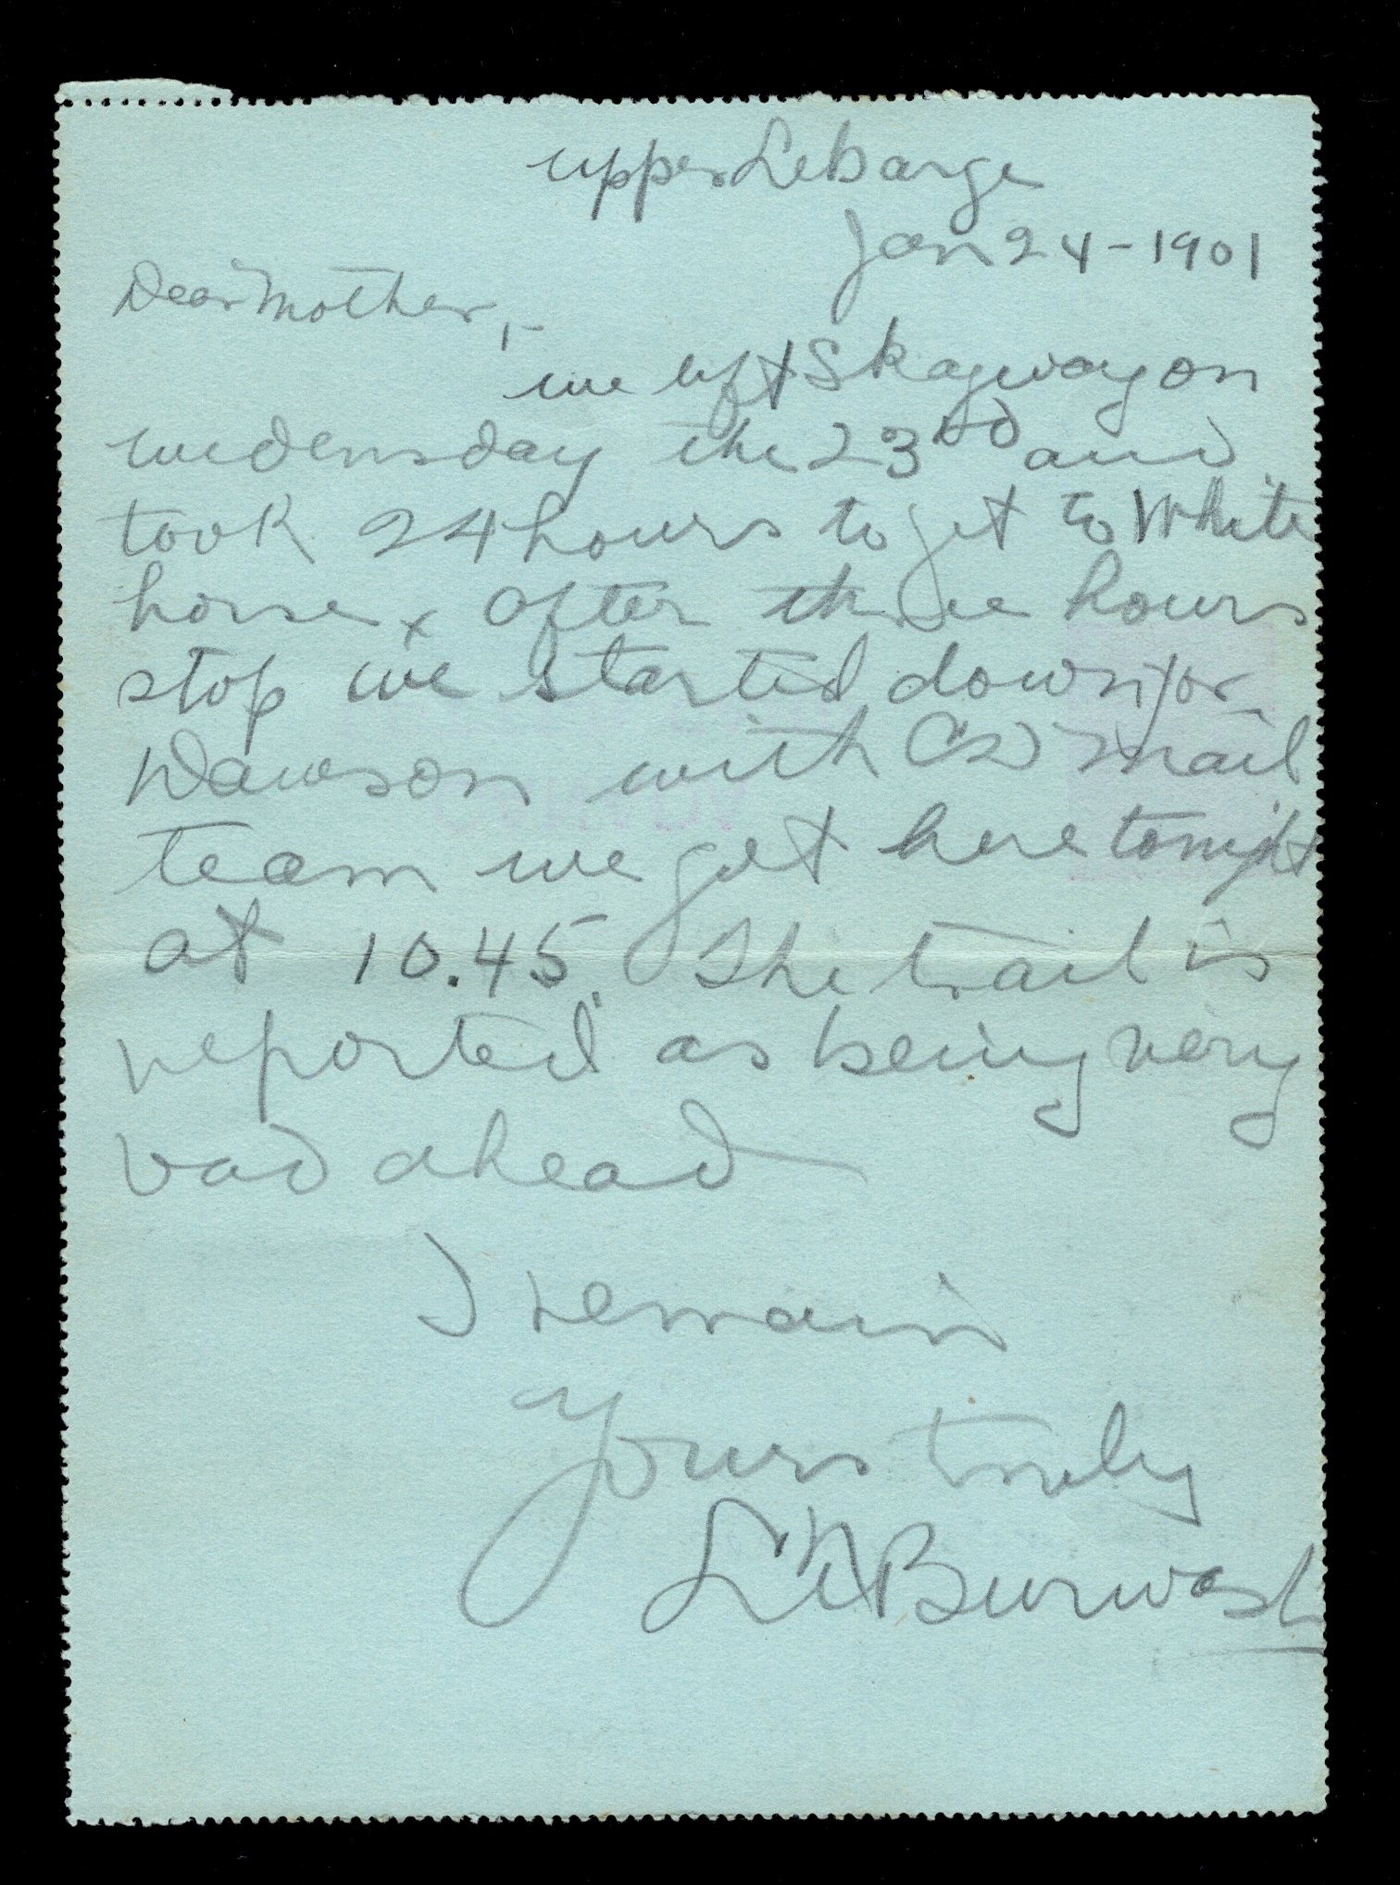 upper Lebarge
Jan 24-1901
Dear Mother,-
we left Skagway on
wedensday the 23rd and
took 24 hours to get to White
horse, after three hours
stop we started down for
Dawson with CD mail
team we got here tonight
at 10.45. The trail is
reported as being very
bad ahead
I remain
Yours truly
LTBurwash